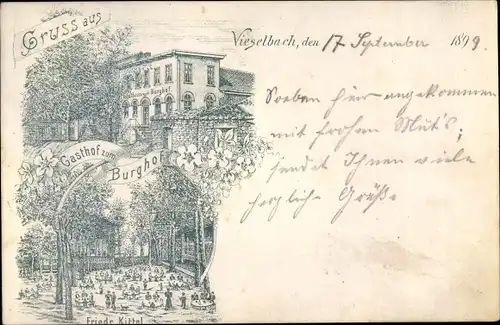 Gruss aus
Vieselbach, den 17 September 1899.
Restaurant Burghof.
Soeben hier angekommen
mit frohen Mut's;
sendet Ihnen viele
herzliche Grüße
Gasthof zum
Burghof
Friedr. Kittel